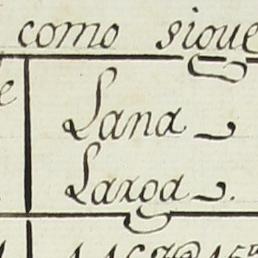 como sigue
Lana
Larga.